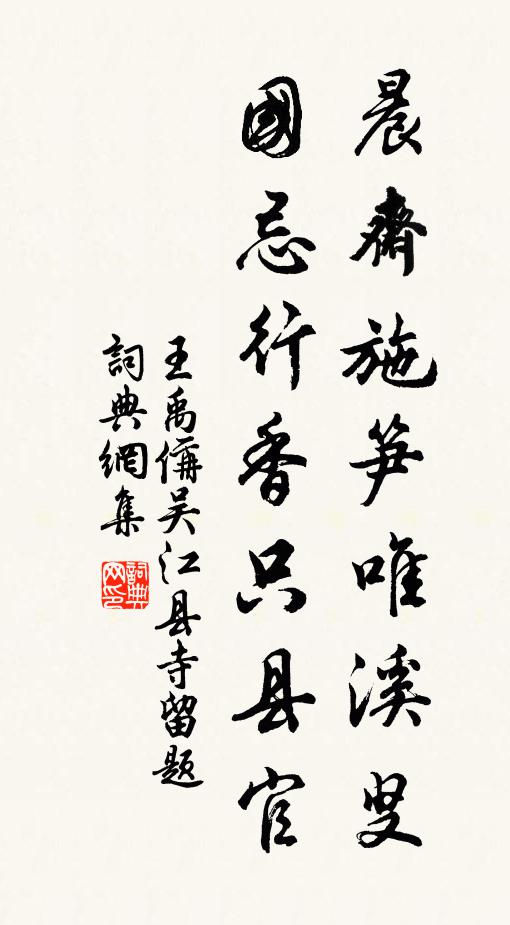 晨齋施笋唯溪叟
國忌行香只县官
王禹偁吴江县寺留题
詞典網集
詞典网印